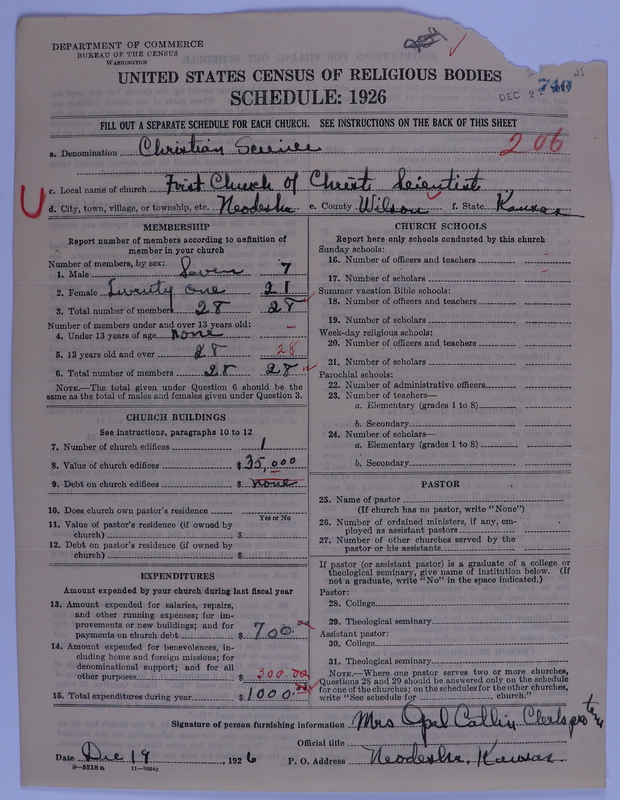 DEPARTMENT OF COMMERCE
BUREAU OF THE CENSUS
WASHINGTON
UNITED STATES CENSUS OF RELIGIOUS BODIES
SCHEDULE: 1926
DEC 2
740
FILL OUT A SEPARATE SCHEDULE FOR EACH CHURCH. SEE INSTRUCTIONS ON THE BACK OF THIS SHEET
a. Denomination Christian Science
206
c. Local name of church First Church of Christ Scientist
d. City, town, village, or township, etc. Neodesha e. County Wilson f. State Kansas
MEMBERSHIP
Report number of members according to definition of
member in your church
Number of members, by sex:
1. Male Seven 7
2. Female Twenty one 21
3. Total number of members 28 28
Number of members under and over 13 years old:
4. Under 13 years of age none –
5. 13 years old and over 28 28
6. Total number of members 28 28
NOTE.—The total given under Question 6 should be the
same as the total of males and females given under Question 3.
CHURCH BUILDINGS
See instructions, paragraphs 10 to 12
7. Number of church edifices 1
8. Value of church edifices $ 35,000
9. Debt on church edifices $ none
10. Does church own pastor's residence?
Yes or No
11. Value of pastor's residence (if owned by
church) $
12. Debt on pastor's residence (if owned by
church) $
EXPENDITURES
Amount expended by your church during last fiscal year
13. Amount expended for salaries, repairs,
and other running expenses; for im-
provements or new buildings; and for
payments on church debt $ 700.
14. Amount expended for benevolences, in-
cluding home and foreign missions; for
denominational support; and for all
other purposes $ 300.00
15. Total expenditures during year $ 1000.
CHURCH SCHOOLS
Report here only schools conducted by this church
Sunday schools:
16. Number of officers and teachers –
17. Number of scholars –
Summer vacation Bible schools:
18. Number of officers and teachers
19. Number of scholars
Week-day religious schools:
20. Number of officers and teachers
21. Number of scholars
Parochial schools:
22. Number of administrative officers
23. Number of teachers—
a. Elementary (grades 1 to 8)
b. Secondary
24. Number of scholars—
a. Elementary (grades 1 to 8)
b. Secondary
PASTOR
25. Name of pastor
(If church has no pastor, write "None")
26. Number of ordained ministers, if any, em-
ployed as assistant pastors
27. Number of other churches served by the
pastor or his assistants
If pastor (or assistant pastor) is a graduate of a college or
theological seminary, give name of institution below. (If
not a graduate, write "No" in the space indicated.)
Pastor:
28. College
29. Theological seminary
Assistant pastor:
30. College
31. Theological seminary
NOTE.—Where one pastor serves two or more churches,
Questions 28 and 29 should be answered only on the schedule
for one of the churches; on the schedules for the other churches,
write "See schedule for church."
Signature of person furnishing information Mrs Opal Catlin Clerk pro tem
Official title
Date Dec 19, 1926 P. O. Address Neodesha, Kansas
8—5518a 11—9064z